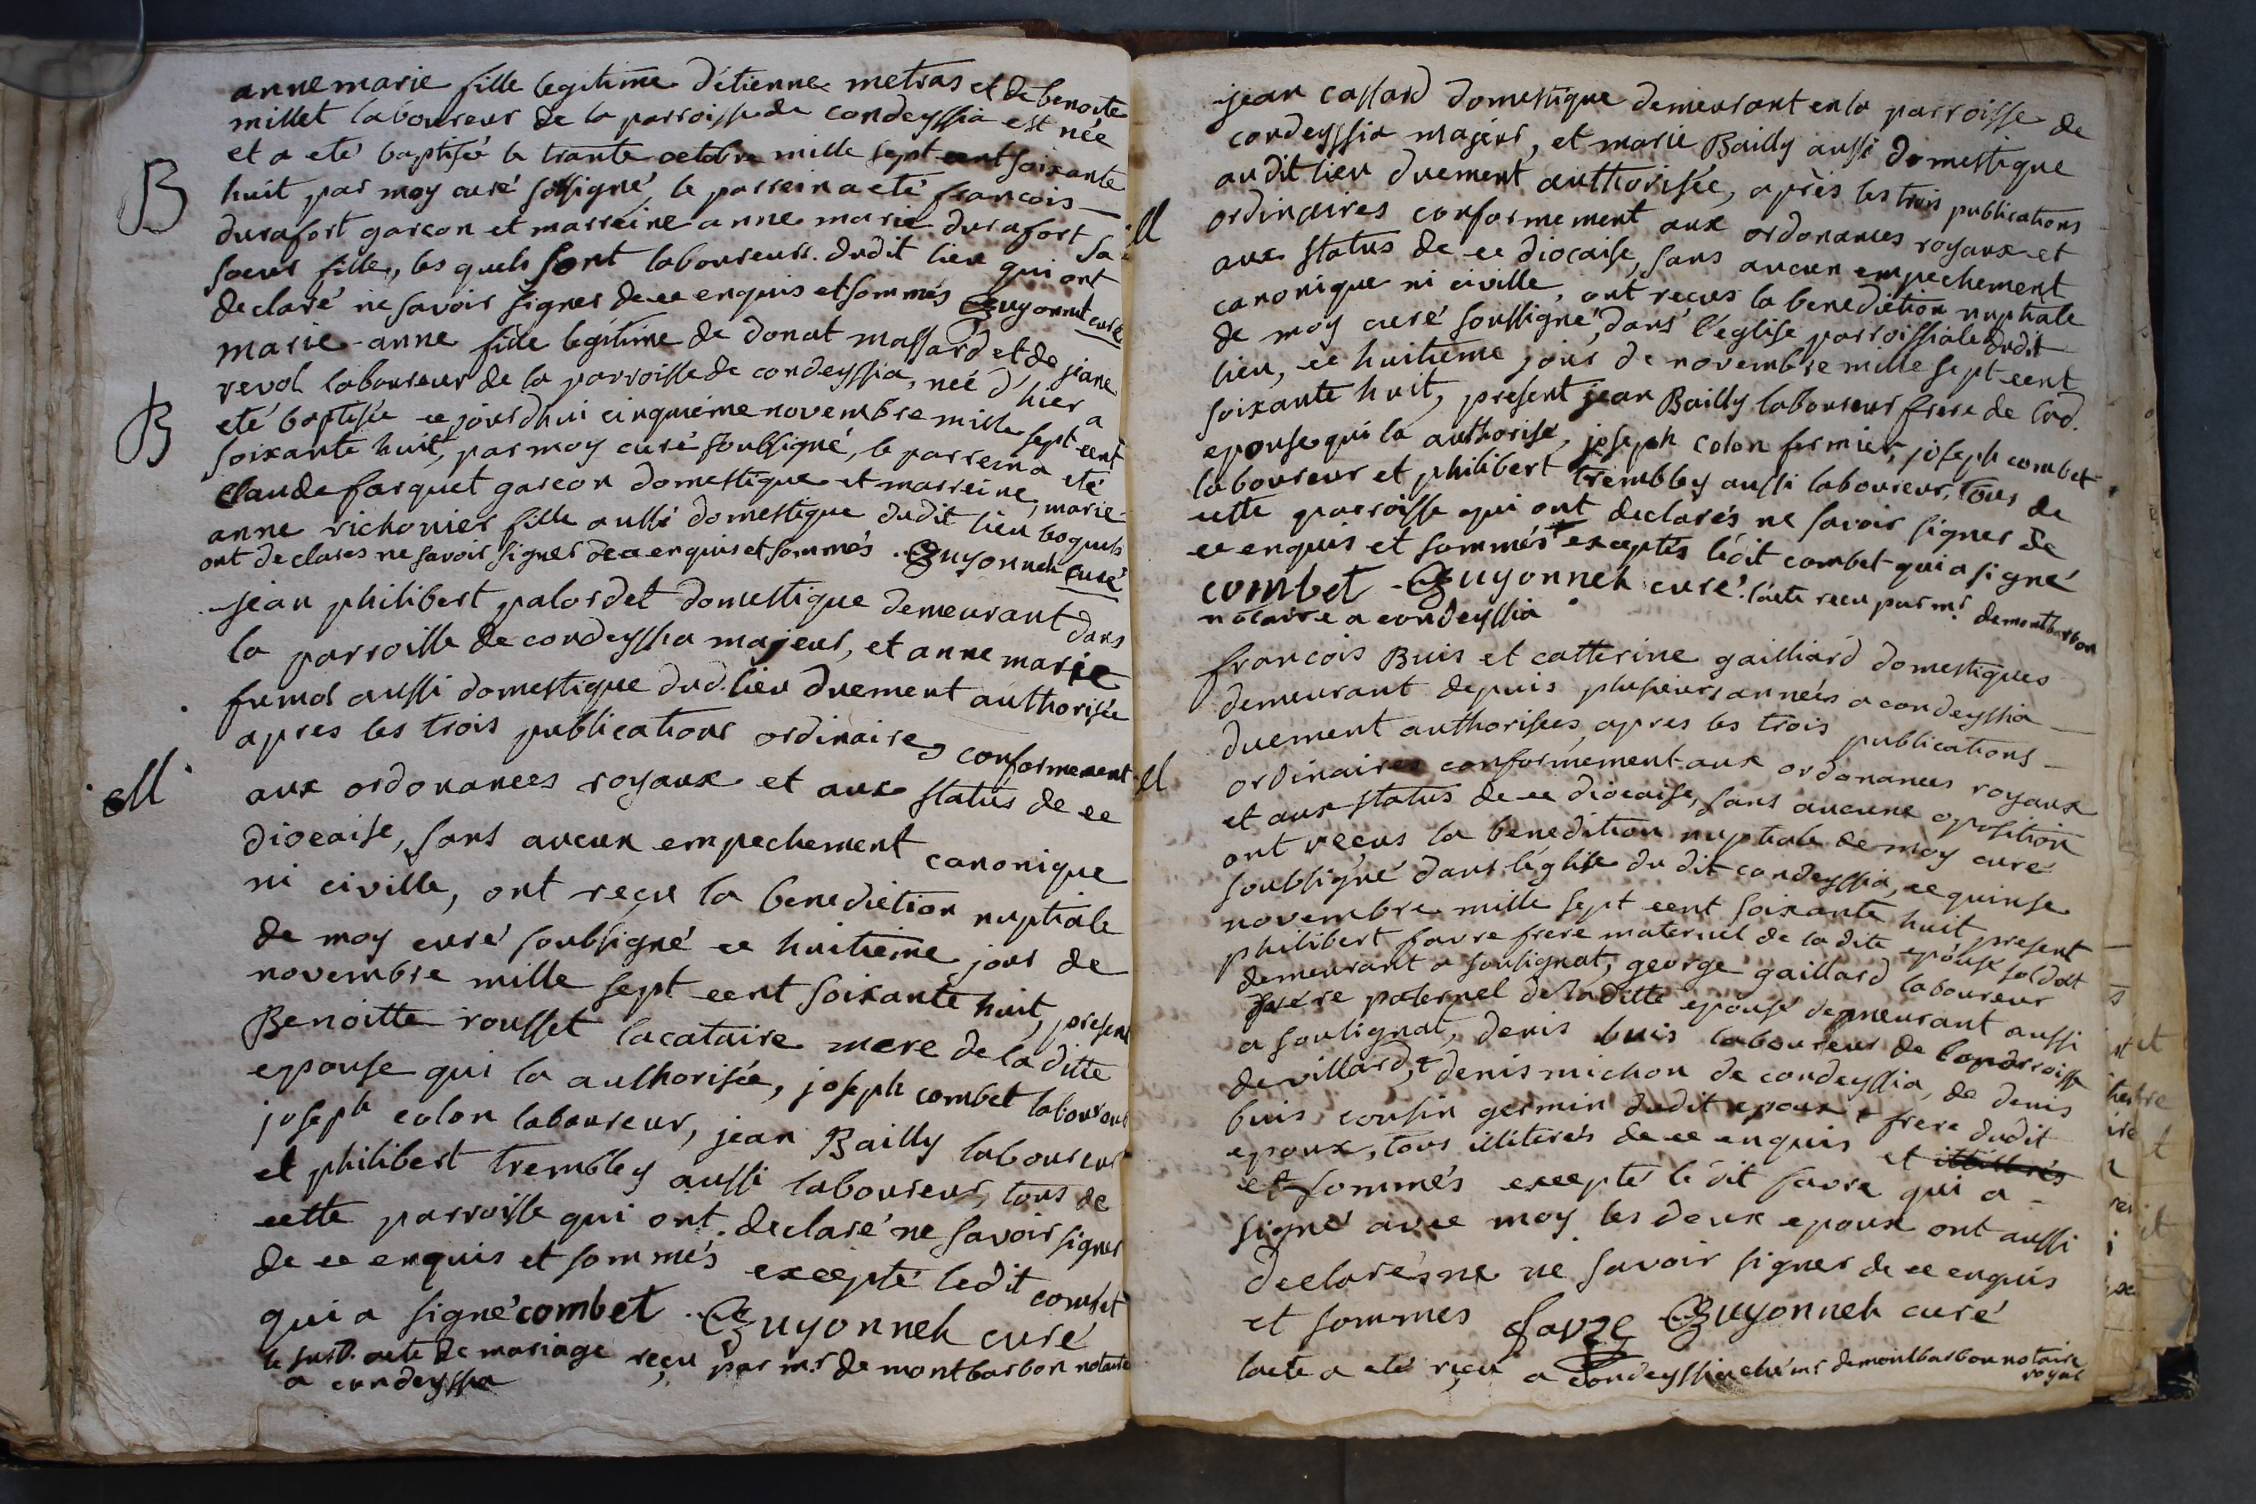 annemarie fille legitime d'étienne metras et de benoite
millet laboureur de la parroisse de condeyssia est née
et a eté baptisée le trante octobre mille sept cent soixante
B
huit par moy curé soussigné, le parrein a eté francois
durafort garcon et marreine anne marie durafort sa
soeur fille, les quels sont laboureurs dudit lieu qui ont
declaré ne savoir signer de ce enquis et sommés Guyonnet curé
marie-anne fille legitime de donat massard et de jeane
revol laboureur de la parroisse de condeyssia, née d'hier a
B
eté baptisée ce jourdhui cinquiéme novembre mille sept cent
soixante huit, par moy curé soubsigné, le parrein a eté
claude farquet garcon domestique et marreine, marie
anne richonier fille aussi domestique dudit lieu lesquels
ont declarés ne savoir signer de ce enquis et sommés. Guyonneh curé
jean philibert palordet domestique demeurant dans
la parroisse de condeyssia majeur, et anne marie
fumol aussi domestique dud. lieu duement authorisée
apres les trois publications ordinaires conformement
M
aux ordonances royaux et aux status de ce
diocaise, sans aucun empechement canonique
ni civille, ont reçu la benediction nuptiale
de moy curé soubsigné ce huitieme jour de
novembre mille sept cent soixante huit, present
Benoitte rousset lacataire mere de la ditte
epouse qui la authorisée, joseph combet laboureur
joseph colon laboureur, jean Bailly laboureur
et philibert trembley aussi laboureur, tous de
cette parroisse qui ont declaré ne savoir signer
de ce enquis et sommés excepté ledit combet
qui a signé combet. Guyonneh curé
le susd. acte de mariage reçu par mr de montbarbon notaire
a condeyssia
jean cassard domestique demeurant en la parroisse de
condeyssia majeur, et marie Bailly aussi domestique
audit lieu duement authorisée, après les trois publications
M
ordinaires conformement aux ordonances royaux et
aux status de ce diocaise, sans aucun empechement
canonique ni civille, ont reçus la benediction nuptiale
de moy curé soussigné, dans l'église parroissiale dudit
lieu, ce huitieme jour de novembre mille sept cent
soixante huit, present jean Bailly laboureur frere de lad.
epouse qui la authorisé, joseph colon fermier, joseph combet
laboureur et philibert trembley aussi laboureur, tous de
cette parroisse qui ont declarés ne savoir signer de
ce enquis et sommés exceptés ledit combet qui a signé
combet. Guyonneh curé. lacte recu par mr demontbarbon
notaire a condeyssia
francois Buis et catterine gailliard domestiques
demeurant depuis plusieurs années a condeyssia
duement authorisées, apres les trois publications
M
ordinaires conformement aux ordonances royaux
et aux status de ce diocaise, sans aucune oposition
ont reçus la benedition nuptiale de moy curé
soubsigné dans l'église du dit condeyssia, ce quinse
novembre mille sept cent soixante huit present
philibert favre frere maternel de la dite epouse soldat
demeurant a soulignat, george gaillard laboureur
frere paternel de la ditte epouse demeurant aussi
a soulignat, denis buis laboureur de la parroisse
de villard, denis michon de condeyssia, de denis
buis cousin germin dudit epoux frere dudit
epoux, tous illiterés de ce enquis et illiterés
et sommés excepté ledit favre qui a
signé avec moy les deux epoux ont aussi
declarés ne ne savoir signer de ce enquis
et sommes favre Guyonneh curé
lacte a eté reçu a condeyssia ché mr demontbarbon notaire
royal